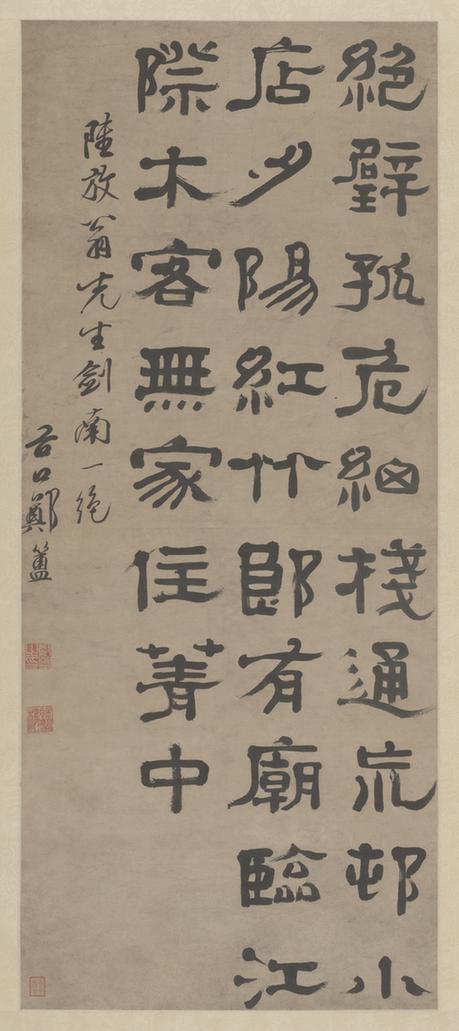 絕壁孤危細棧通荒邨小
店夕陽紅竹郎有廟臨江
際木客無家住菁中
陸放翁先生劍南一絕
谷口鄭簠